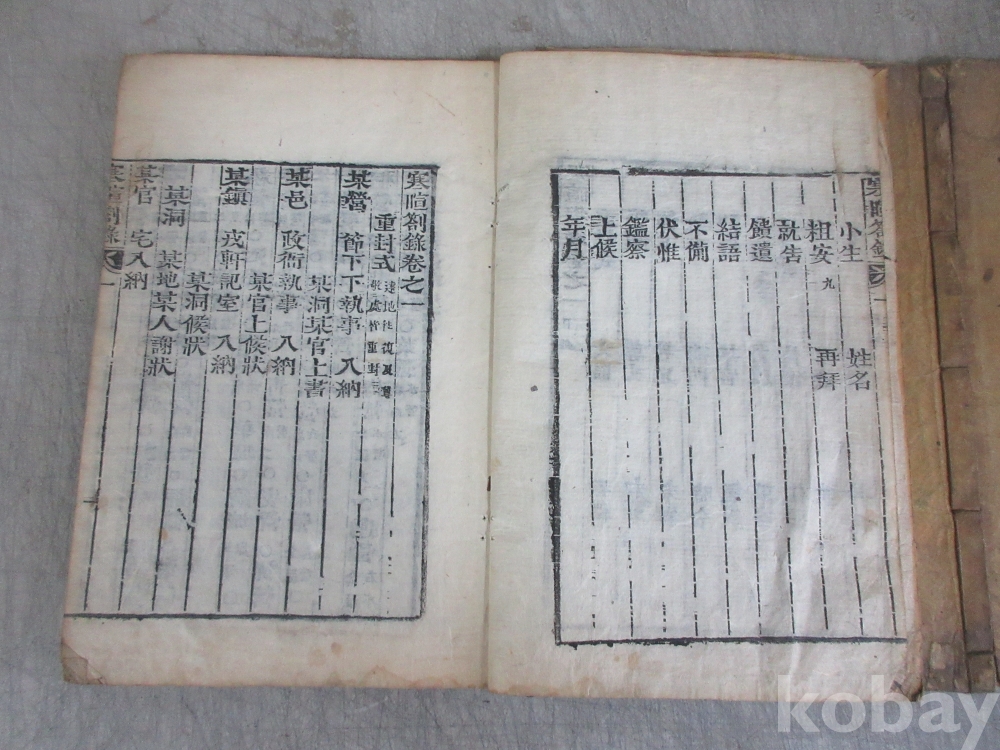 寒暄箚錄 一
小生 姓名
粗安 九 再拜
就告
饋遺
結語
不備
伏惟
鑑察
上候
年月
寒暄箚錄卷之一
重封式
敬處皆重封
某營 節下下執事 入納
某洞某官上書
某邑 政衙執事 入納
某官上候狀
某鎭 戎軒記室 入納
某洞候狀
某洞 某地某人謝狀
某官 宅入納
寒暄箚錄 一
kobay